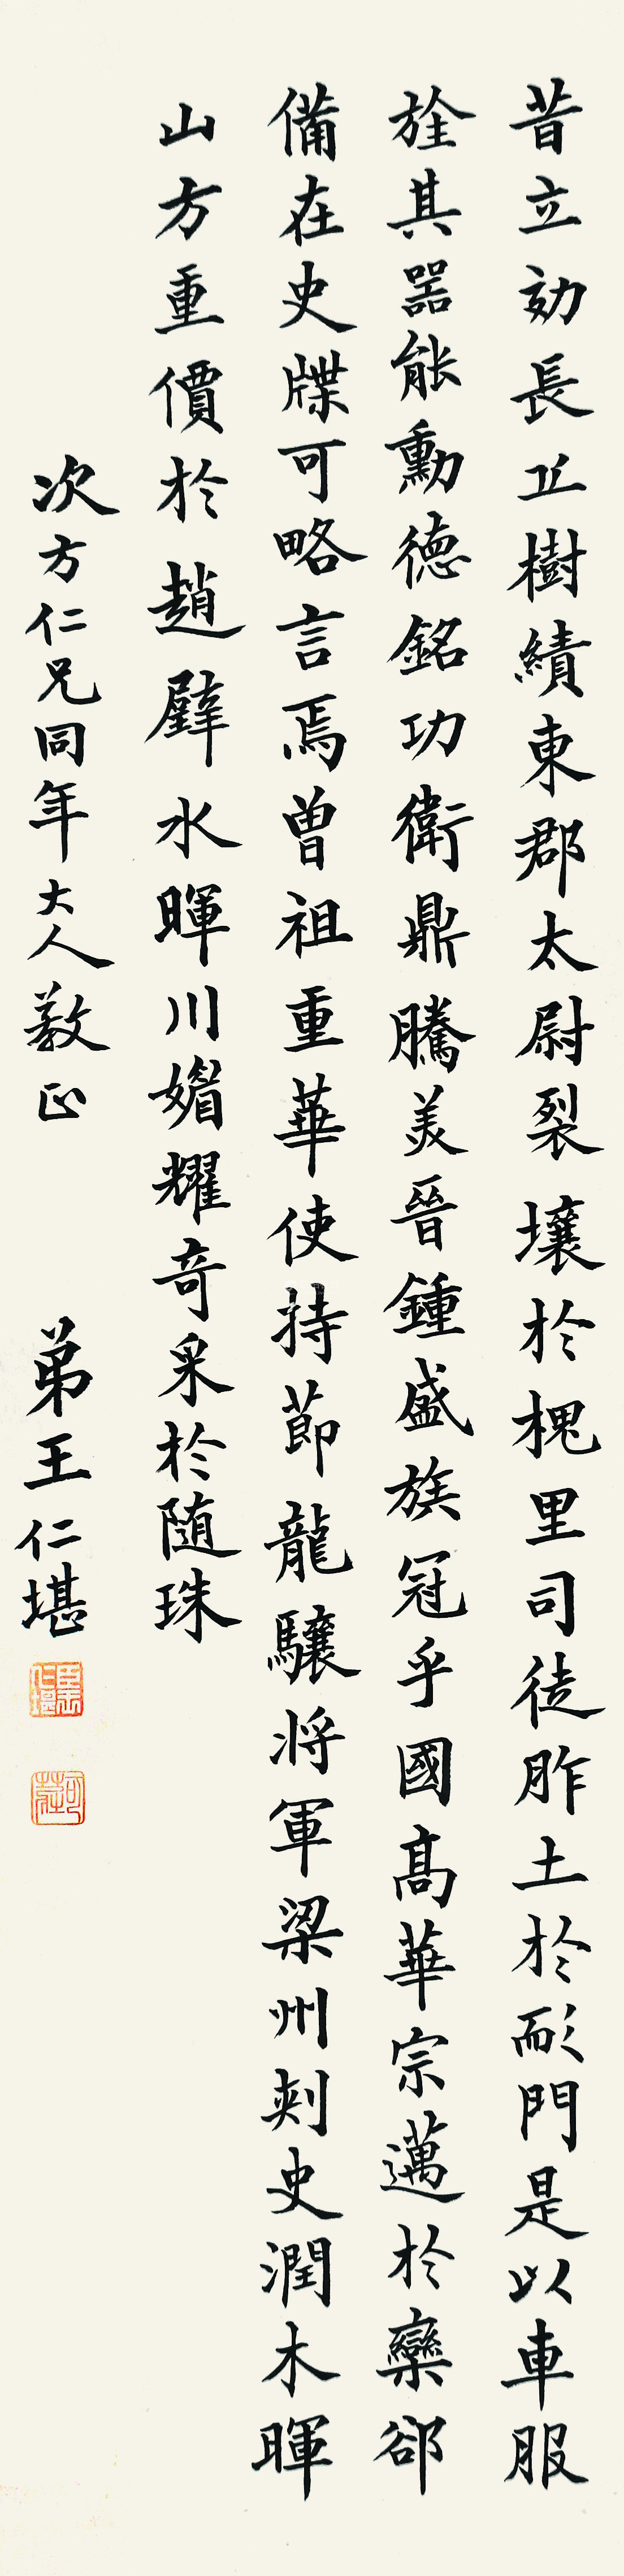 昔立効長丘樹績東郡太尉裂壤於槐里司徒胙土於耏門是以車服
旌其器能勳德銘功衛鼎騰美晉鍾盛族冠乎國高華宗邁於欒郤
備在史牒可略言焉曾祖重華使持節龍驤將軍梁州刺史潤木暉
山方重價於趙璧水暉川媚耀奇采於随珠
次方仁兄同年大人教正
弟王仁堪
王仁堪
可莊